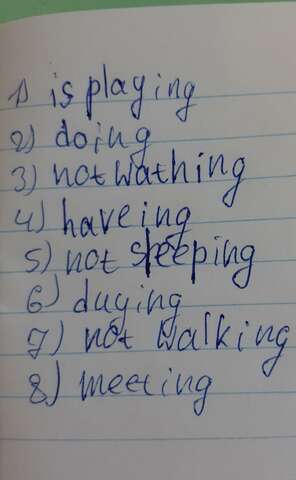 1) is playing
2) doing
3) not wathing
4) haveing
5) not sleeping
6) duying
7) not walking
8) meeting